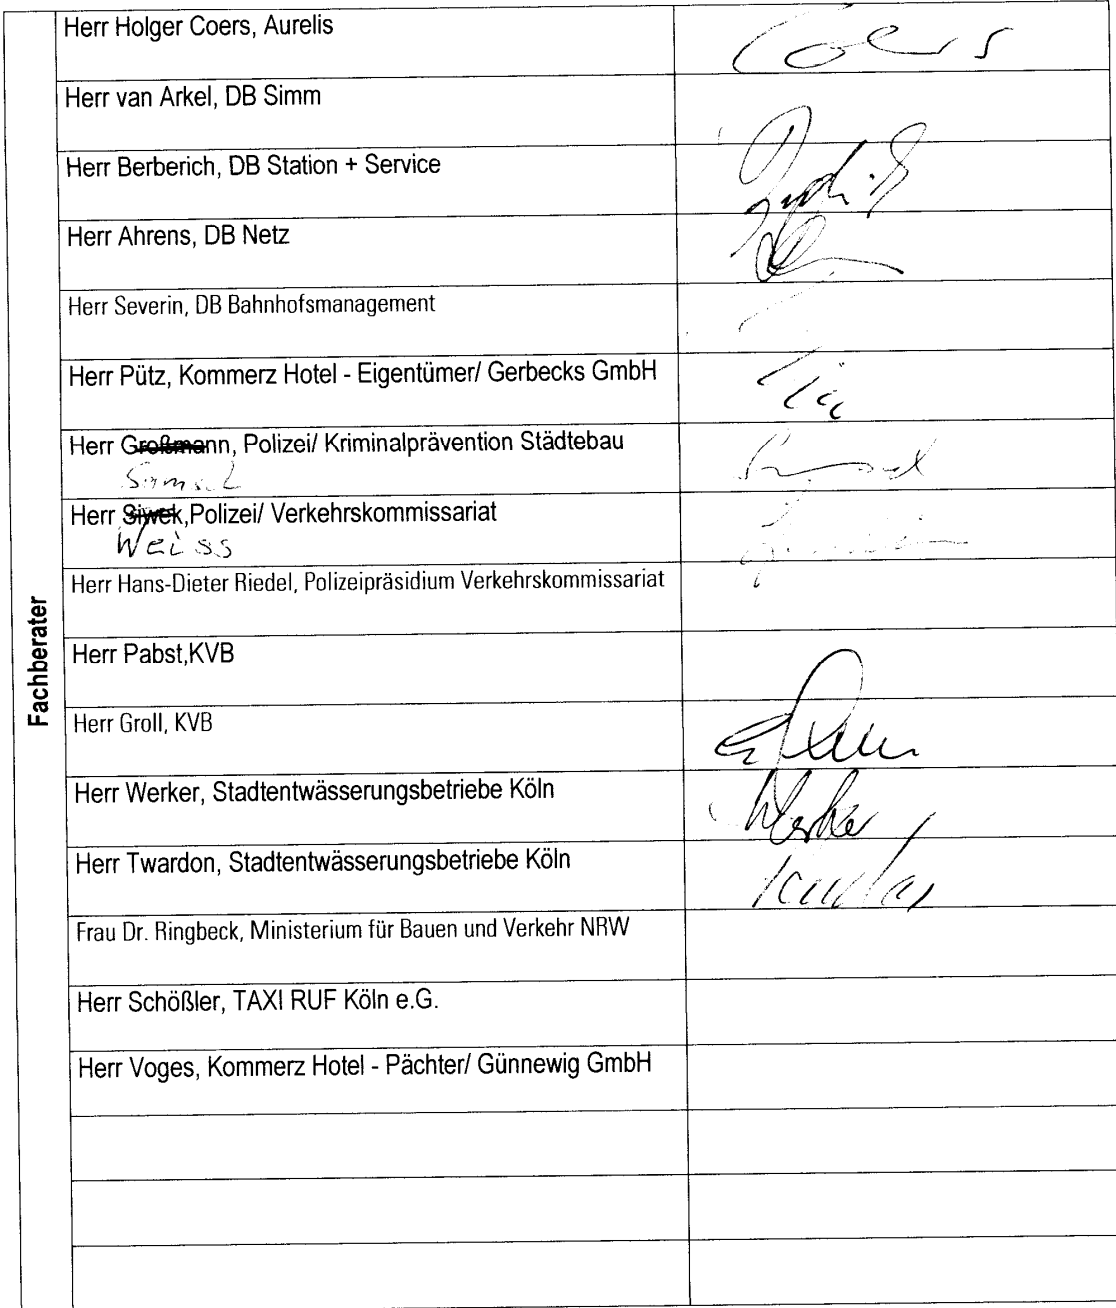 Herr Holger Coers, Aurelis
Coers
Herr van Arkel, DB Simm
Herr Berberich, DB Station + Service
Herr Ahrens, DB Netz
Herr Severin, DB Bahnhofsmanagement
Herr Pütz, Kommerz Hotel - Eigentümer/ Gerbecks GmbH
Herr Großmann, Polizei/ Kriminalprävention Städtebau
Herr Siwek,Polizei/ Verkehrskommissariat
Weiss
Herr Hans-Dieter Riedel, Polizeipräsidium Verkehrskommissariat
Fachberater
Herr Pabst,KVB
Herr Groll, KVB
Herr Werker, Stadtentwässerungsbetriebe Köln
Werker
Herr Twardon, Stadtentwässerungsbetriebe Köln
Frau Dr. Ringbeck, Ministerium für Bauen und Verkehr NRW
Herr Schößler, TAXI RUF Köln e.G.
Herr Voges, Kommerz Hotel - Pächter/ Günnewig GmbH